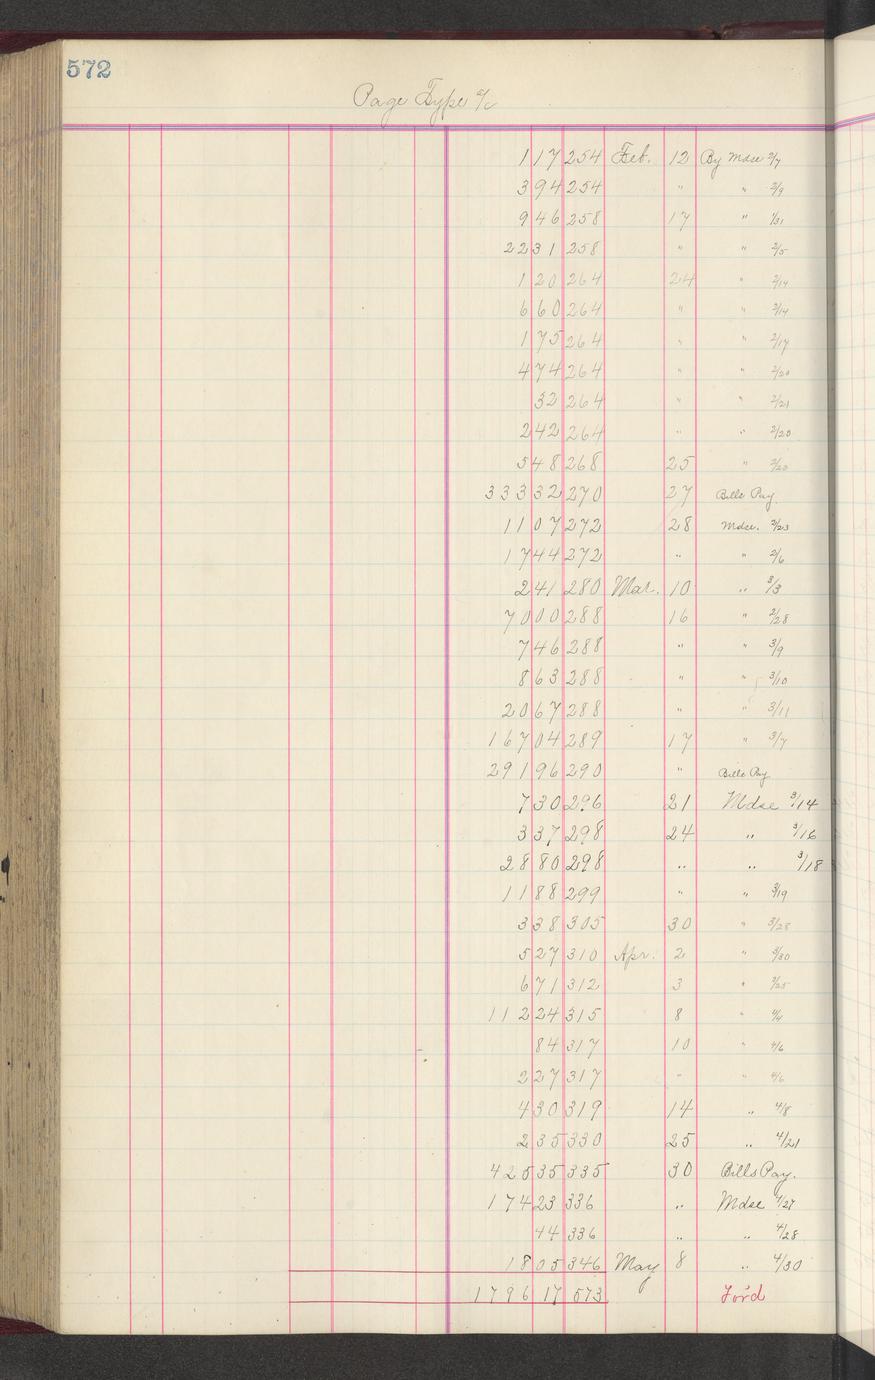 572
Page Type a/c
1 17 254 Feb. 12 By Mdse 2/7
3 94 254 " " 2/9
9 46 258 17 " 1/31
22 31 258 " " 2/5
1 20 264 24 " 2/14
6 60 264 " " 2/14
1 75 264 " " 2/17
4 74 264 " " 2/20
32 264 " " 2/21
2 42 264 " " 2/20
5 48 268 25 " 2/20
333 32 270 27 Bills Pay.
11 07 272 28 Mdse. 2/23
17 44 272 " " 2/6
2 41 280 Mar. 10 " 3/3
70 00 288 16 " 2/28
7 46 288 " " 3/9
8 63 288 " " 3/10
20 67 288 " " 3/11
167 04 289 17 " 3/7
291 96 290 " Bills Pay
7 30 296 21 Mdse 3/14
3 37 298 24 " 3/16
28 80 298 " " 3/18
11 88 299 " " 3/19
3 38 305 30 " 3/28
5 27 310 Apr. 2 " 3/30
6 71 312 3 " 3/25
112 24 315 8 " 4/4
84 317 10 " 4/6
2 27 317 " " 4/6
4 30 319 14 " 4/8
2 35 330 25 " 4/21
425 35 335 30 Bills Pay.
174 23 336 " Mdse 4/27
44 336 " " 4/28
18 05 346 May 8 " 4/30
1796 17 573 For'd